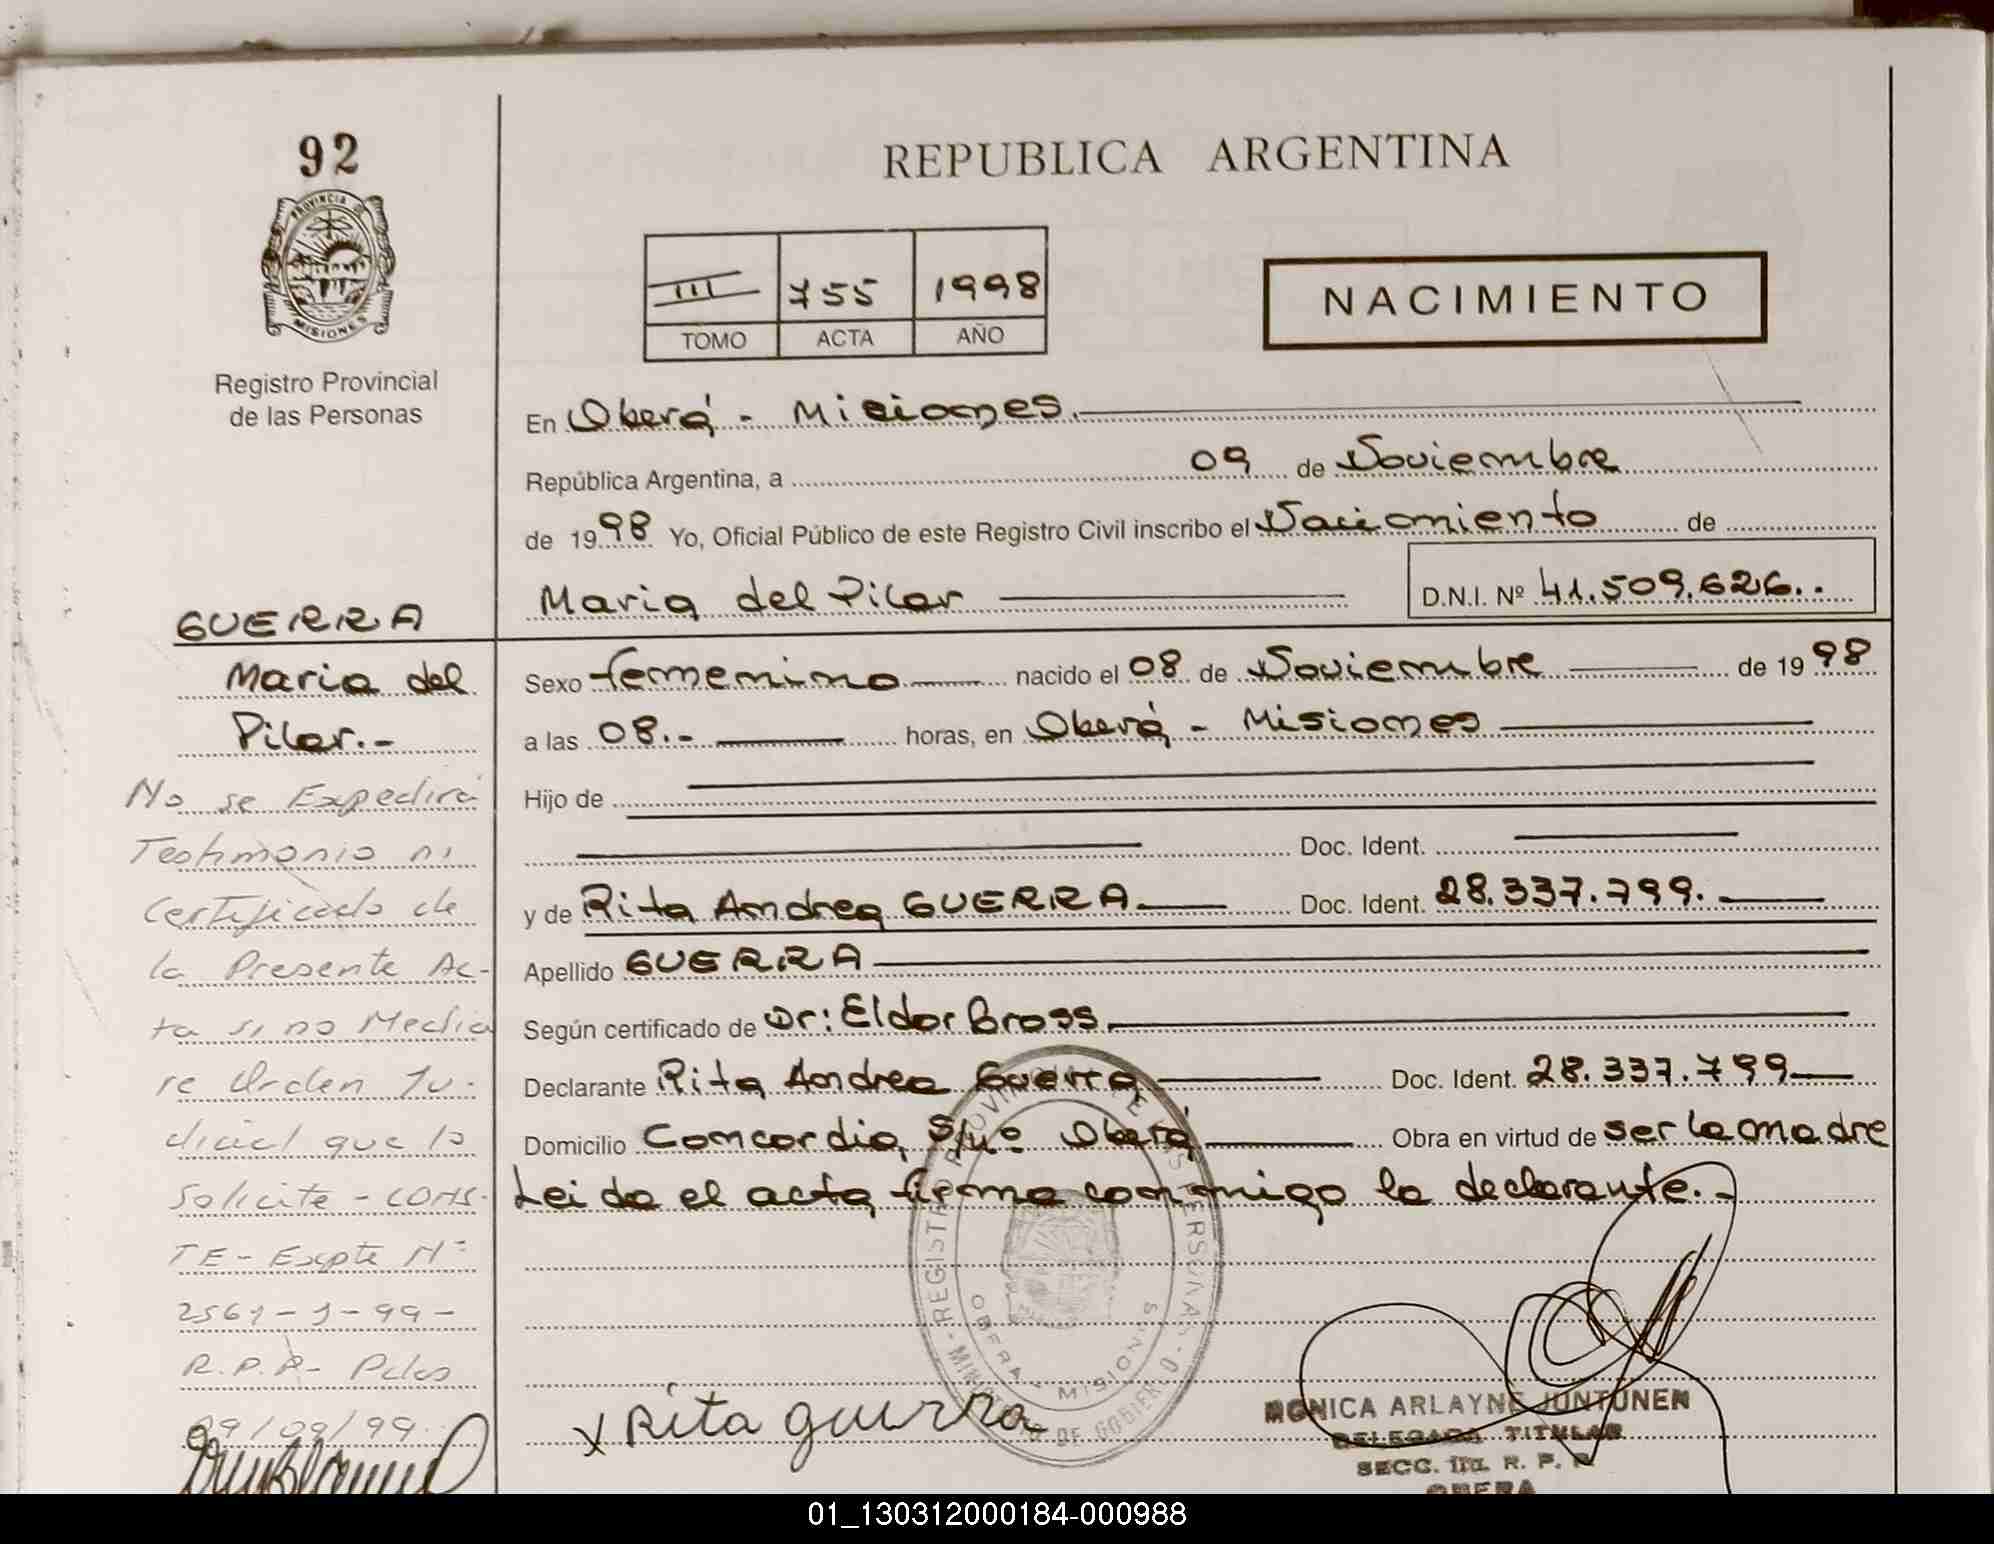 92
PROVINCIA DE
MISIONES
Registro Provincial
de las Personas
GUERRA
Maria del
Pilar.-
No se Expedirá
Testimonio ni
Certificado de
la Presente Ac-
ta si no Media
re Orden Ju-
dicial que lo
Solicite - CONS-
TE - Expte Nº
2561-1-99-
R.P.P- Pdas
09/09/99.
REPUBLICA ARGENTINA
III 755 1998
TOMO ACTA AÑO
NACIMIENTO
En Oberá - Misiones.
República Argentina, a 09 de Noviembre
de 1998 Yo, Oficial Público de este Registro Civil inscribo el Nacimiento de
Maria del Pilar D.N.I. Nº 41.509.626..
Sexo femenino nacido el 08 de Noviembre de 1998
a las 08.- horas, en Oberá - Misiones
Hijo de
Doc. Ident.
y de Rita Andrea GUERRA Doc. Ident. 28.337.799.
Apellido GUERRA
Según certificado de Dr: Eldor Bross
Declarante Rita Andrea Guerra Doc. Ident. 28.337.799
Domicilio Concordia, S/Nº Oberá Obra en virtud de ser la madre
Leida el acta, firma conmigo la declarante.-
REGISTRO PROVINCIAL DE LAS PERSONAS
OBERA - MISIONES
MINISTERIO DE GOBIERNO
x Rita guerra
MONICA ARLAYNE JUNTUNEN
DELEGADA TITULAR
SECC. IIIa. R. P. P.
OBERA
01_130312000184-000988